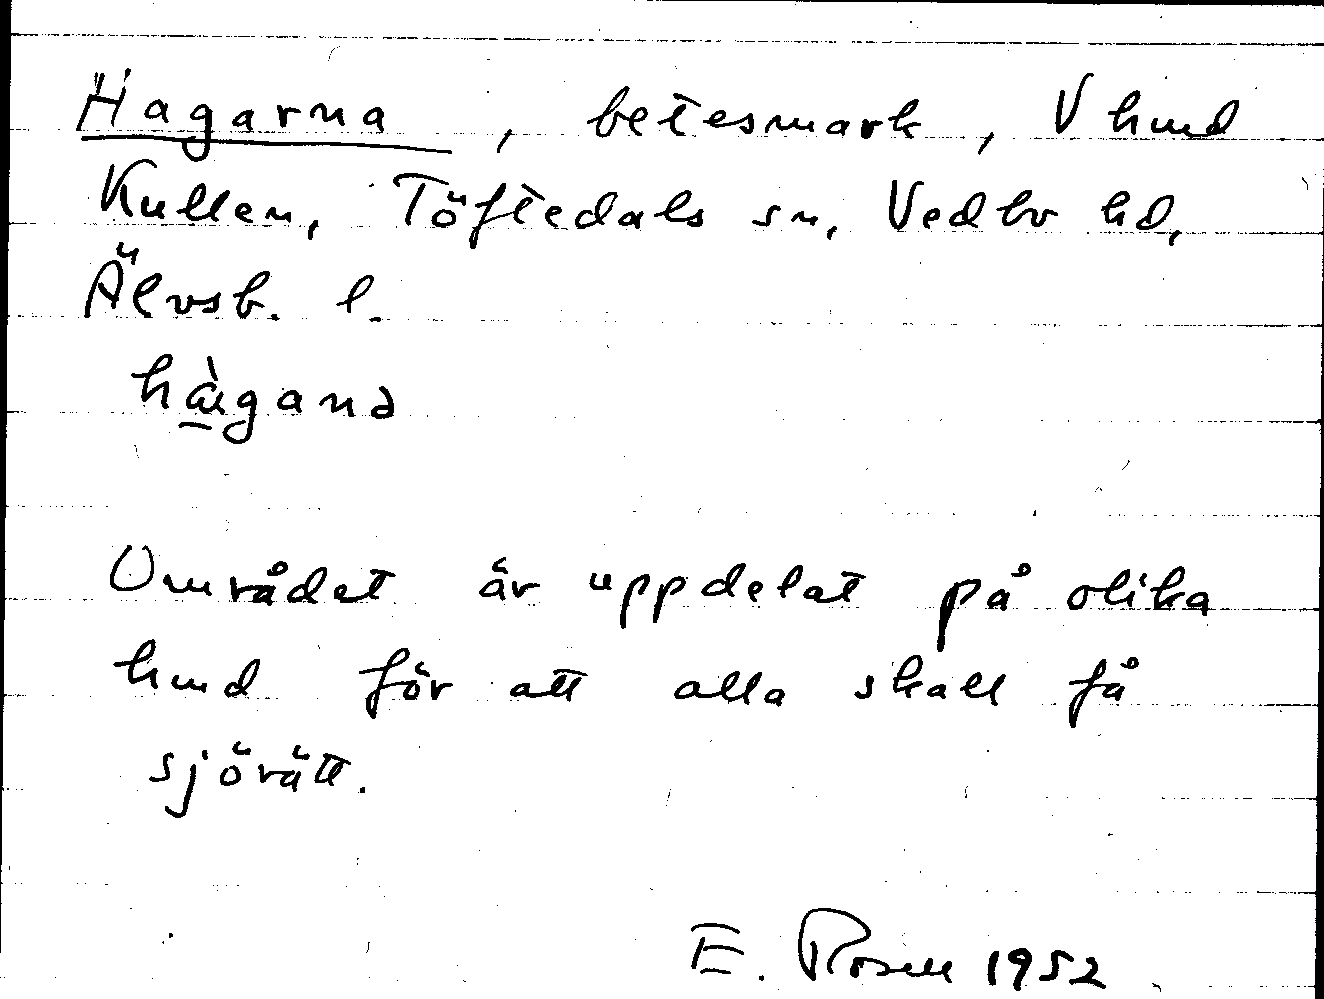 Hagarna, betesmark, V hmd
Kullen, Töftedals sn, Vedbo hd,
Älvsb. l.
hàganə
Området är uppdelat på olika
hmd för att alla skall få
sjörätt.
E. Rosell 1952